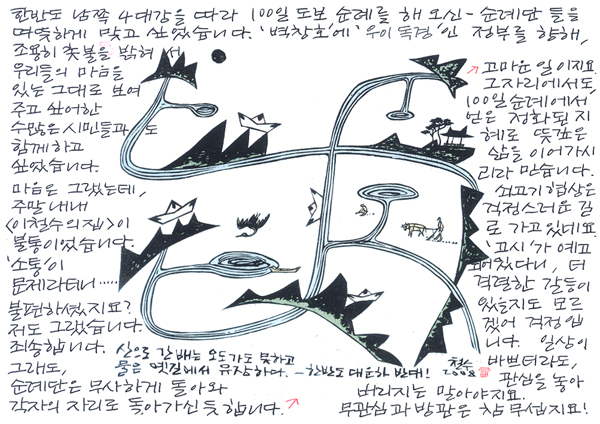 한반도 남쪽 4대강을 따라 100일 도보 순례를 해 오신 - 순례단 들을
따뜻하게 맞고 싶었습니다. '벽창호'에 '우이독경'인 정부를 향해,
조용히 촛불을 밝혀서
우리들의 마음을
있는 그대로 보여
주고 싶어한
수많은 시민들과도
함께하고
싶었습니다.
마음은 그랬는데,
주말 내내
<이철수의 집>이
불통이었습니다.
'소통'이
문제라더니……
불편하셨지요?
저도 그랬습니다.
죄송합니다.
그래도,
순례단은 무사하게 돌아와
각자의 자리로 돌아가신 듯 합니다. ↗
↗ 고마운 일이지요.
그자리에서도,
100일 순례에서
얻은 정화된 지
혜로 뜻깊은
삶을 이어가시
리라 믿습니다.
쇠고기 협상은
걱정스러운 길
로 가고 있네요.
'고시'가 예고
되어있다니, 더
격렬한 갈등이
있을지도 모르
겠어 걱정입
니다. 일상이
바쁘더라도,
관심을 놓아
버리지는 말아야지요.
무관심과 방관은 참 무섭지요!
산으로 간 배는 오도가도 못하고
물은 옛길에서 유장하다. - 한반도 대운하 반대!
철수
2008